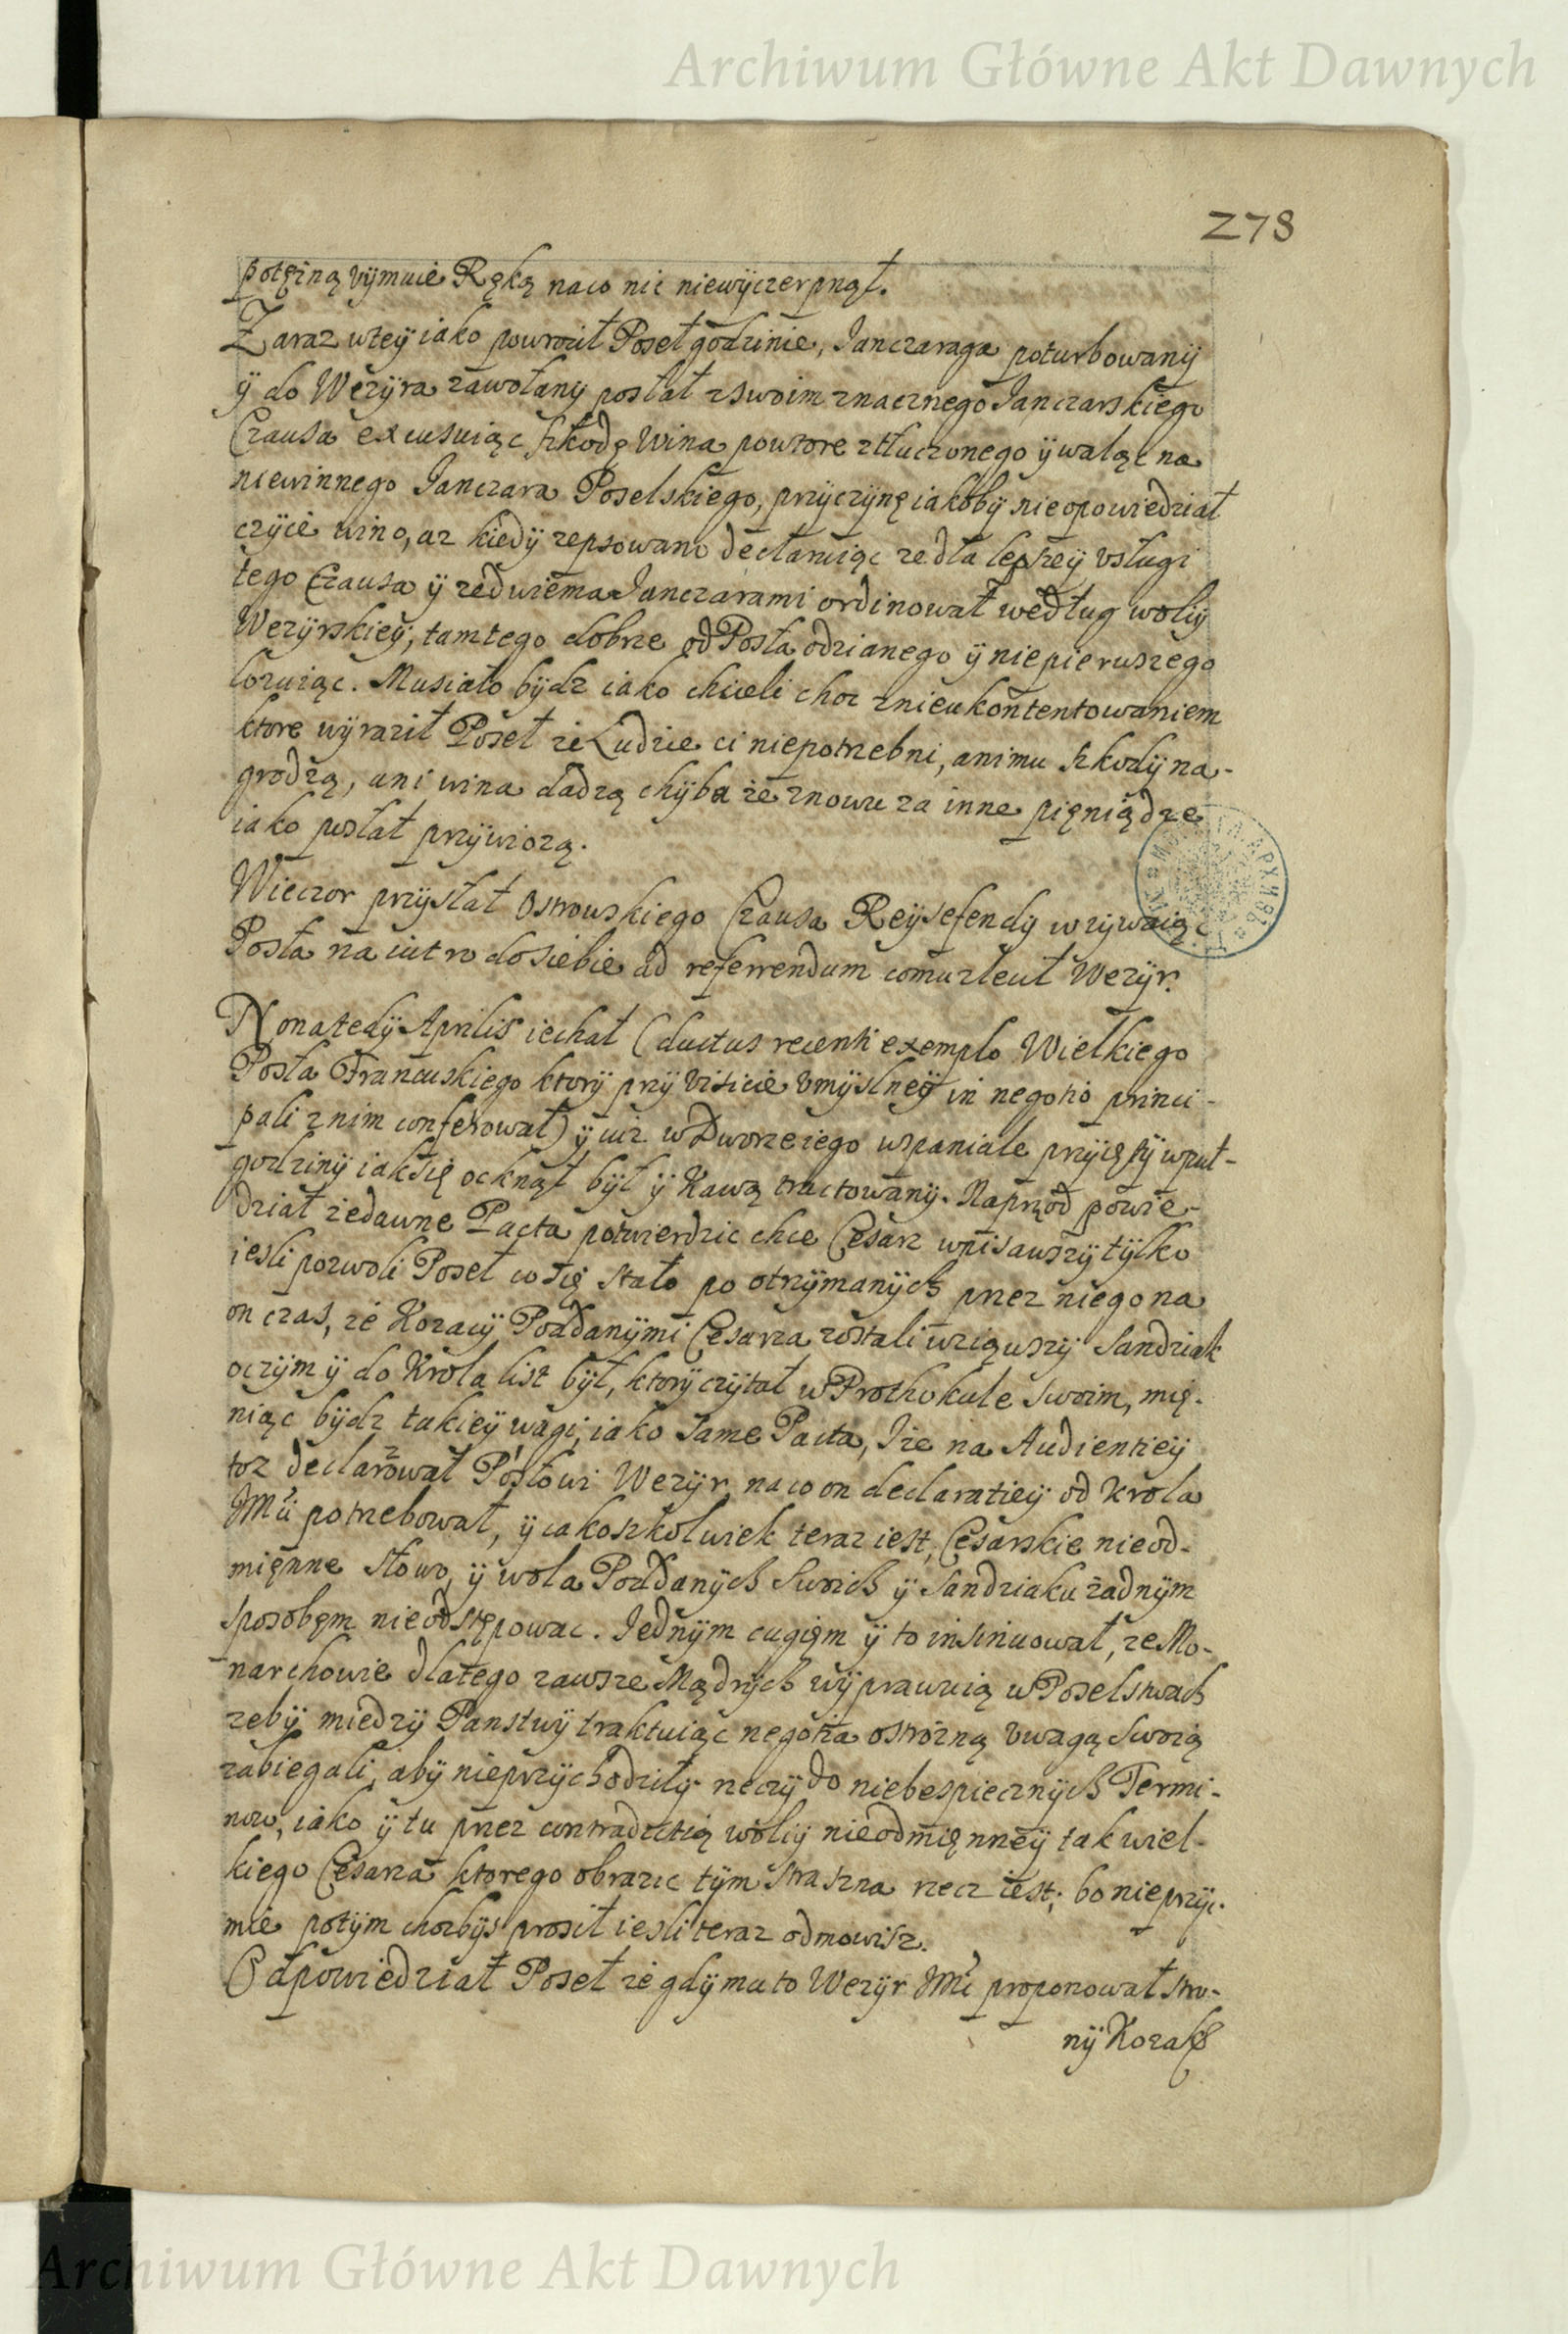 Archiwum Główne Akt Dawnych
278
potęzną vÿmuie Ręką naco nic niewÿczerpnął.
Zaraz wteÿ iako powrocił Poseł godzinie, Janczaraga poturbowanÿ
ÿ do Wezÿra zawołany posłał zswoim znacznego Janczarskiego
Czausa excusuiąc szkodę Wina powtore ztłuczonego ÿ waląc na
niewinnego Janczara Poselskiego, przÿczÿnę iakobÿ nieopowiedział
czÿie wino, az kiedÿ zepsowano declaruiąc ze dla lepszeÿ vsługi
tego Czausa ÿ zedwiema Janczarami ordinował według woliÿ
Wezÿrskieÿ, tamtego dobrze od Posła odzianego ÿ niepierwszego
lozuiąc. Musiało bÿdz iako chcieli choc znieukontentowaniem
ktore wÿraził Poseł że Ludzie ci niepotrzebni, animu szkodÿ na-
grodzą, ani wina dadzą chÿba że znowu za inne pięniądze
iako posłał przÿwiozą.
Wieczor przÿsłał Ostrowskiego Czausa Reÿsefendÿ wzÿwaiąc
Posła na iutro dosiebie ad referrendum comuzlecił Wezÿr.
Nonatedÿ Aprilis iechał (ductus recenti exemplo Wielkiego
Posła Francuskiego ktorÿ przÿ Visicie vmÿslneÿ in negotio princi-
pali znim conferował) ÿ iuz wDworze iego wspaniale przÿiętÿ wpuł-
godzinÿ iaksię ocknął bÿł ÿ Kawą tractowanÿ. Naprzod powie-
dział żedawne Pacta potwierdzic chce Cesarz wpisawszÿ tÿlko
iesli pozwoli Poseł cosię stało po otrzÿmanÿch przez niego na
on czas, że Kozacÿ Poddanÿmi Cesarza zostali wziąwszÿ Sandziak
oczÿm ÿ do Krola list bÿł, ktorÿ czÿtał w Prothokule swoim, mię-
niąc bÿdz takieÿ wagi, iako same Pacta, I że na Audientieÿ
toz declarował Posłowi Wezÿr, naco on declaratieÿ od Krola
JMci potrzebował, ÿ iakoszkolwiek teraz iest, Cesarskie nieod-
mięnne słowo, ÿ wola Poddanÿch swoich ÿ Sandziaku żadnÿm
sposobęm nieodstępowac. Jednÿm cugięm ÿ to insinuował, ze Mo-
narchowie dlatego zawsze Mądrÿch wÿprawuią w Poselstwach
zebÿ miedzÿ Panstwÿ traktuiąc negotia ostrożną vwagą swoią
zabiegali, abÿ nieprzÿchodziłÿ rzeczÿ do niebespiecznÿch Termi-
now, iako ÿ tu przez contradictią woliÿ nieodmięnneÿ tak wiel-
kiego Cesarza ktorego obrazic tÿm straszna rzecz iest; bo nieprzÿi-
mie potÿm chocbÿs prosił iesli teraz odmowisz.
Odpowiedział Poseł że gdÿ mu to Wezÿr JMci proponował stro-
nÿ Kozak
Archiwum Główne Akt Dawnych